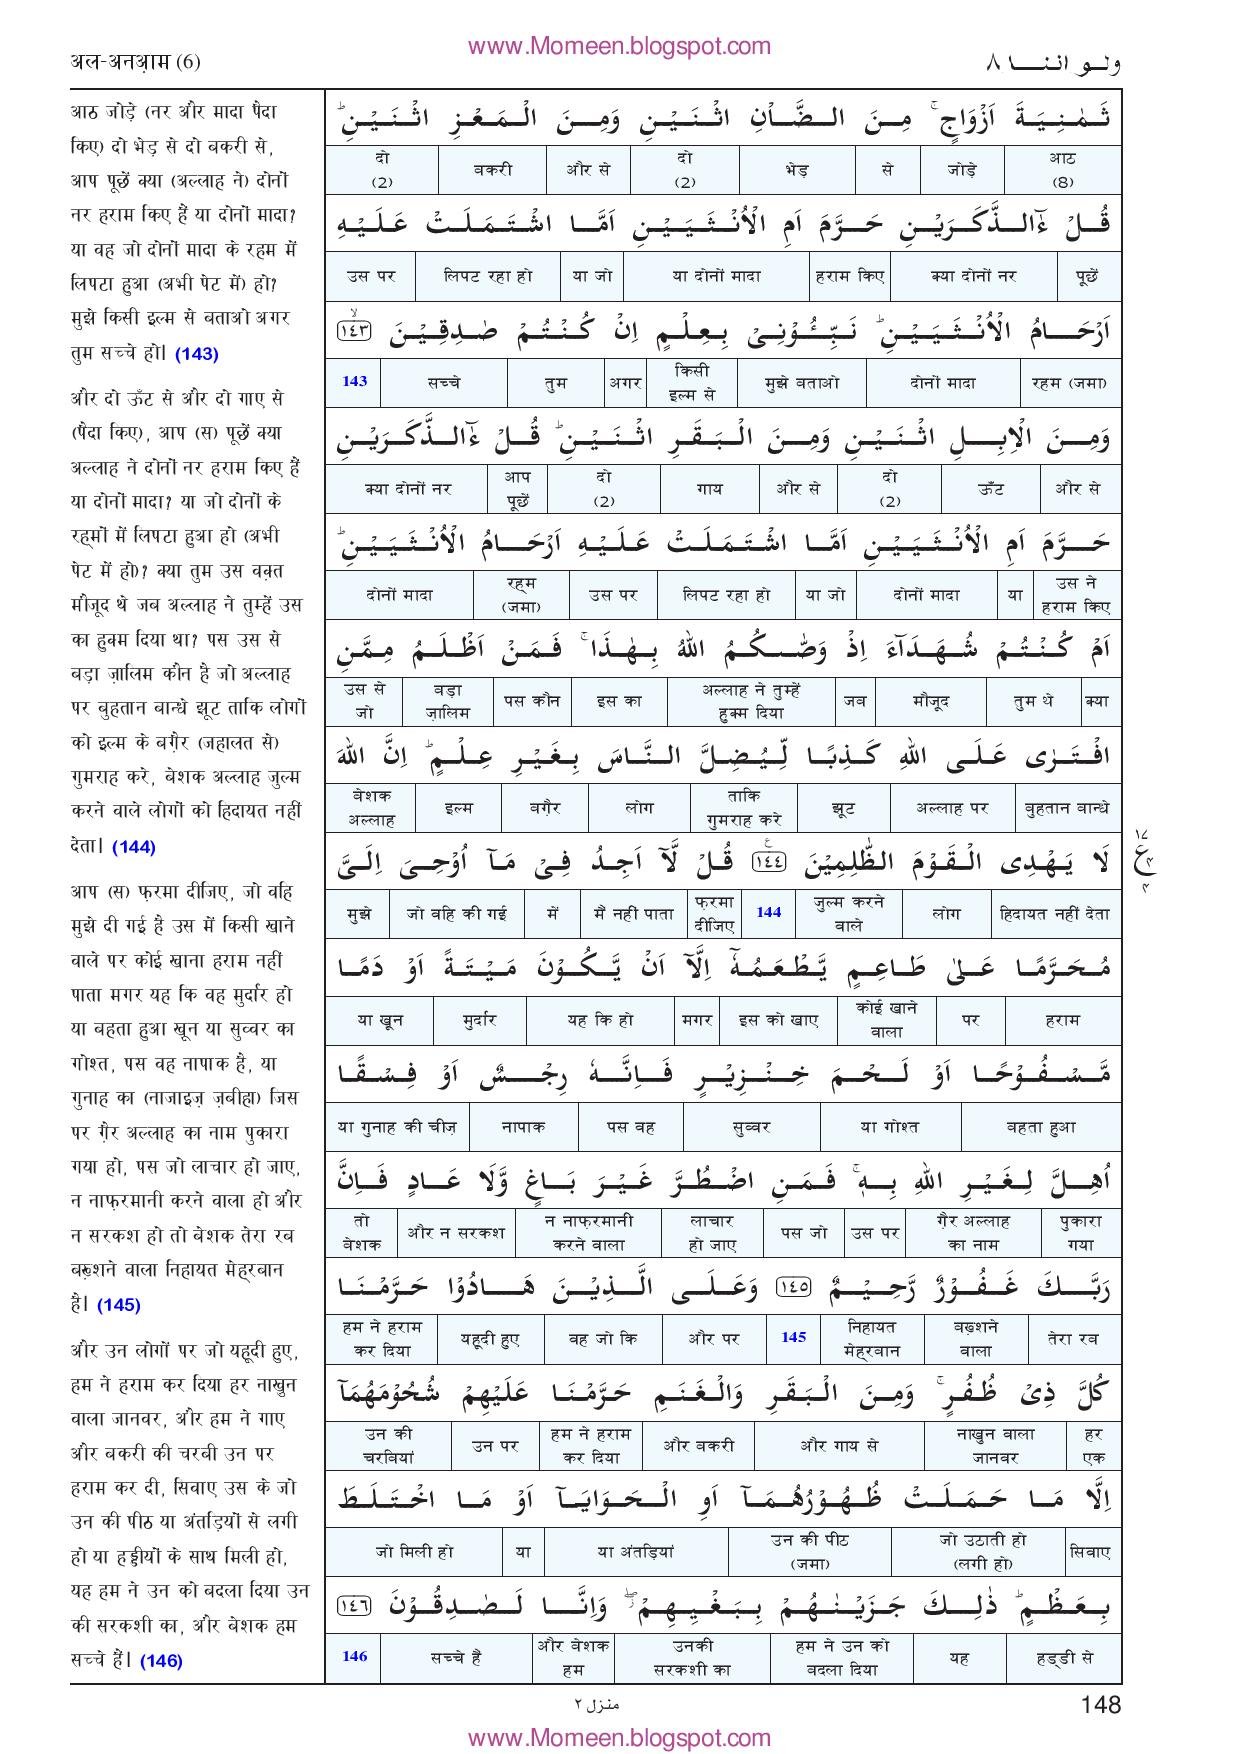 www.Momeen.blogspot.com
अल-अनआ़म (6)
ولـو انـنــا ٨
आठ जोड़े (नर और मादा पैदा
किए) दो भेड़ से दो बकरी से,
आप पूछें क्या (अल्लाह ने) दोनों
नर हराम किए हैं या दोनों मादा?
या वह जो दोनों मादा के रहम में
लिपटा हुआ (अभी पेट में) हो?
मुझे किसी इल्म से बताओ अगर
तुम सच्चे हो। (143)
और दो ऊँट से और दो गाए से
(पैदा किए), आप (स) पूछें क्या
अल्लाह ने दोनों नर हराम किए हैं
या दोनों मादा? या जो दोनों के
रह्मों में लिपटा हुआ हो (अभी
पेट में हो)? क्या तुम उस वक़्त
मौजूद थे जब अल्लाह ने तुम्हें उस
का हुक्म दिया था? पस उस से
बड़ा ज़ालिम कौन है जो अल्लाह
पर बुहतान बान्धे झूट ताकि लोगों
को इल्म के बग़ैर (जहालत से)
गुमराह करे, बेशक अल्लाह जुल्म
करने वाले लोगों को हिदायत नहीं
देता। (144)
आप (स) फ़रमा दीजिए, जो वहि
मुझे दी गई है उस में किसी खाने
वाले पर कोई खाना हराम नहीं
पाता मगर यह कि वह मुर्दार हो
या बहता हुआ खून या सुव्वर का
गोश्त, पस वह नापाक है, या
गुनाह का (नाजाइज़ ज़बीहा) जिस
पर ग़ैर अल्लाह का नाम पुकारा
गया हो, पस जो लाचार हो जाए,
न नाफ़रमानी करने वाला हो और
न सरकश हो तो बेशक तेरा रब
बख़्शने वाला निहायत मेह्रबान
है। (145)
और उन लोगों पर जो यहूदी हुए,
हम ने हराम कर दिया हर नाखुन
वाला जानवर, और हम ने गाए
और बकरी की चरबी उन पर
हराम कर दी, सिवाए उस के जो
उन की पीठ या अंतड़ियों से लगी
हो या हड्डीयों के साथ मिली हो,
यह हम ने उन को बदला दिया उन
की सरकशी का, और बेशक हम
सच्चे हैं। (146)
ثَمٰنِيَةَ اَزْوَاجٍ ۚ مِنَ الضَّاْنِ اثْنَيْنِ وَمِنَ الْمَعْزِ اثْنَيْنِ ؕ
दो (2) बकरी और से दो (2) भेड़ से जोड़े आठ (8)
قُلْ ءٰٓالذَّكَرَيْنِ حَرَّمَ اَمِ الْاُنْثَيَيْنِ اَمَّا اشْتَمَلَتْ عَلَيْهِ
उस पर लिपट रहा हो या जो या दोनों मादा हराम किए क्या दोनों नर पूछें
اَرْحَامُ الْاُنْثَيَيْنِ ؕ نَبِّـُٔوْنِيْ بِعِلْمٍ اِنْ كُنْتُمْ صٰدِقِيْنَ ۙ ١٤٣
143 सच्चे तुम अगर किसी इल्म से मुझे बताओ दोनों मादा रहम (जमा)
وَمِنَ الْاِبِلِ اثْنَيْنِ وَمِنَ الْبَقَرِ اثْنَيْنِ ؕ قُلْ ءٰٓالذَّكَرَيْنِ
क्या दोनों नर आप पूछें दो (2) गाय और से दो (2) ऊँट और से
حَرَّمَ اَمِ الْاُنْثَيَيْنِ اَمَّا اشْتَمَلَتْ عَلَيْهِ اَرْحَامُ الْاُنْثَيَيْنِ ؕ
दोनों मादा रह्म (जमा) उस पर लिपट रहा हो या जो दोनों मादा या उस ने हराम किए
اَمْ كُنْتُمْ شُهَدَآءَ اِذْ وَصّٰىكُمُ اللّٰهُ بِهٰذَا ۚ فَمَنْ اَظْلَمُ مِمَّنِ
उस से जो बड़ा ज़ालिम पस कौन इस का अल्लाह ने तुम्हें हुक्म दिया जब मौजूद तुम थे क्या
افْتَرٰى عَلَى اللّٰهِ كَذِبًا لِّيُضِلَّ النَّاسَ بِغَيْرِ عِلْمٍ ؕ اِنَّ اللّٰهَ
बेशक अल्लाह इल्म बग़ैर लोग ताकि गुमराह करे झूट अल्लाह पर बुहतान बान्धे
لَا يَهْدِى الْقَوْمَ الظّٰلِمِيْنَ ع ١٤٤ قُلْ لَّآ اَجِدُ فِيْ مَآ اُوْحِيَ اِلَيَّ
١٧ ع ٤ ٤
मुझे जो वहि की गई में मैं नहीं पाता फ़रमा दीजिए 144 जुल्म करने वाले लोग हिदायत नहीं देता
مُحَرَّمًا عَلٰى طَاعِمٍ يَّطْعَمُهٗٓ اِلَّآ اَنْ يَّكُوْنَ مَيْتَةً اَوْ دَمًا
या खून मुर्दार यह कि हो मगर इस को खाए कोई खाने वाला पर हराम
مَّسْفُوْحًا اَوْ لَحْمَ خِنْزِيْرٍ فَاِنَّهٗ رِجْسٌ اَوْ فِسْقًا
या गुनाह की चीज़ नापाक पस वह सुव्वर या गोश्त बहता हुआ
اُهِلَّ لِغَيْرِ اللّٰهِ بِهٖ ۚ فَمَنِ اضْطُرَّ غَيْرَ بَاغٍ وَّلَا عَادٍ فَاِنَّ
तो बेशक और न सरकश न नाफ़रमानी करने वाला लाचार हो जाए पस जो उस पर ग़ैर अल्लाह का नाम पुकारा गया
رَبَّكَ غَفُوْرٌ رَّحِيْمٌ ١٤٥ وَعَلَى الَّذِيْنَ هَادُوْا حَرَّمْنَا
हम ने हराम कर दिया यहूदी हुए वह जो कि और पर 145 निहायत मेह्रबान बख़्शने वाला तेरा रब
كُلَّ ذِيْ ظُفُرٍ ۚ وَمِنَ الْبَقَرِ وَالْغَنَمِ حَرَّمْنَا عَلَيْهِمْ شُحُوْمَهُمَآ
उन की चरबियां उन पर हम ने हराम कर दिया और बकरी और गाय से नाखुन वाला जानवर हर एक
اِلَّا مَا حَمَلَتْ ظُهُوْرُهُمَآ اَوِ الْحَوَايَآ اَوْ مَا اخْتَلَطَ
जो मिली हो या या अंतड़ियां उन की पीठ (जमा) जो उठाती हो (लगी हो) सिवाए
بِعَظْمٍ ؕ ذٰلِكَ جَزَيْنٰهُمْ بِبَغْيِهِمْ ۖ وَاِنَّا لَصٰدِقُوْنَ ١٤٦
146 सच्चे हैं और बेशक हम उनकी सरकशी का हम ने उन को बदला दिया यह हड्डी से
منزل ٢
148
www.Momeen.blogspot.com